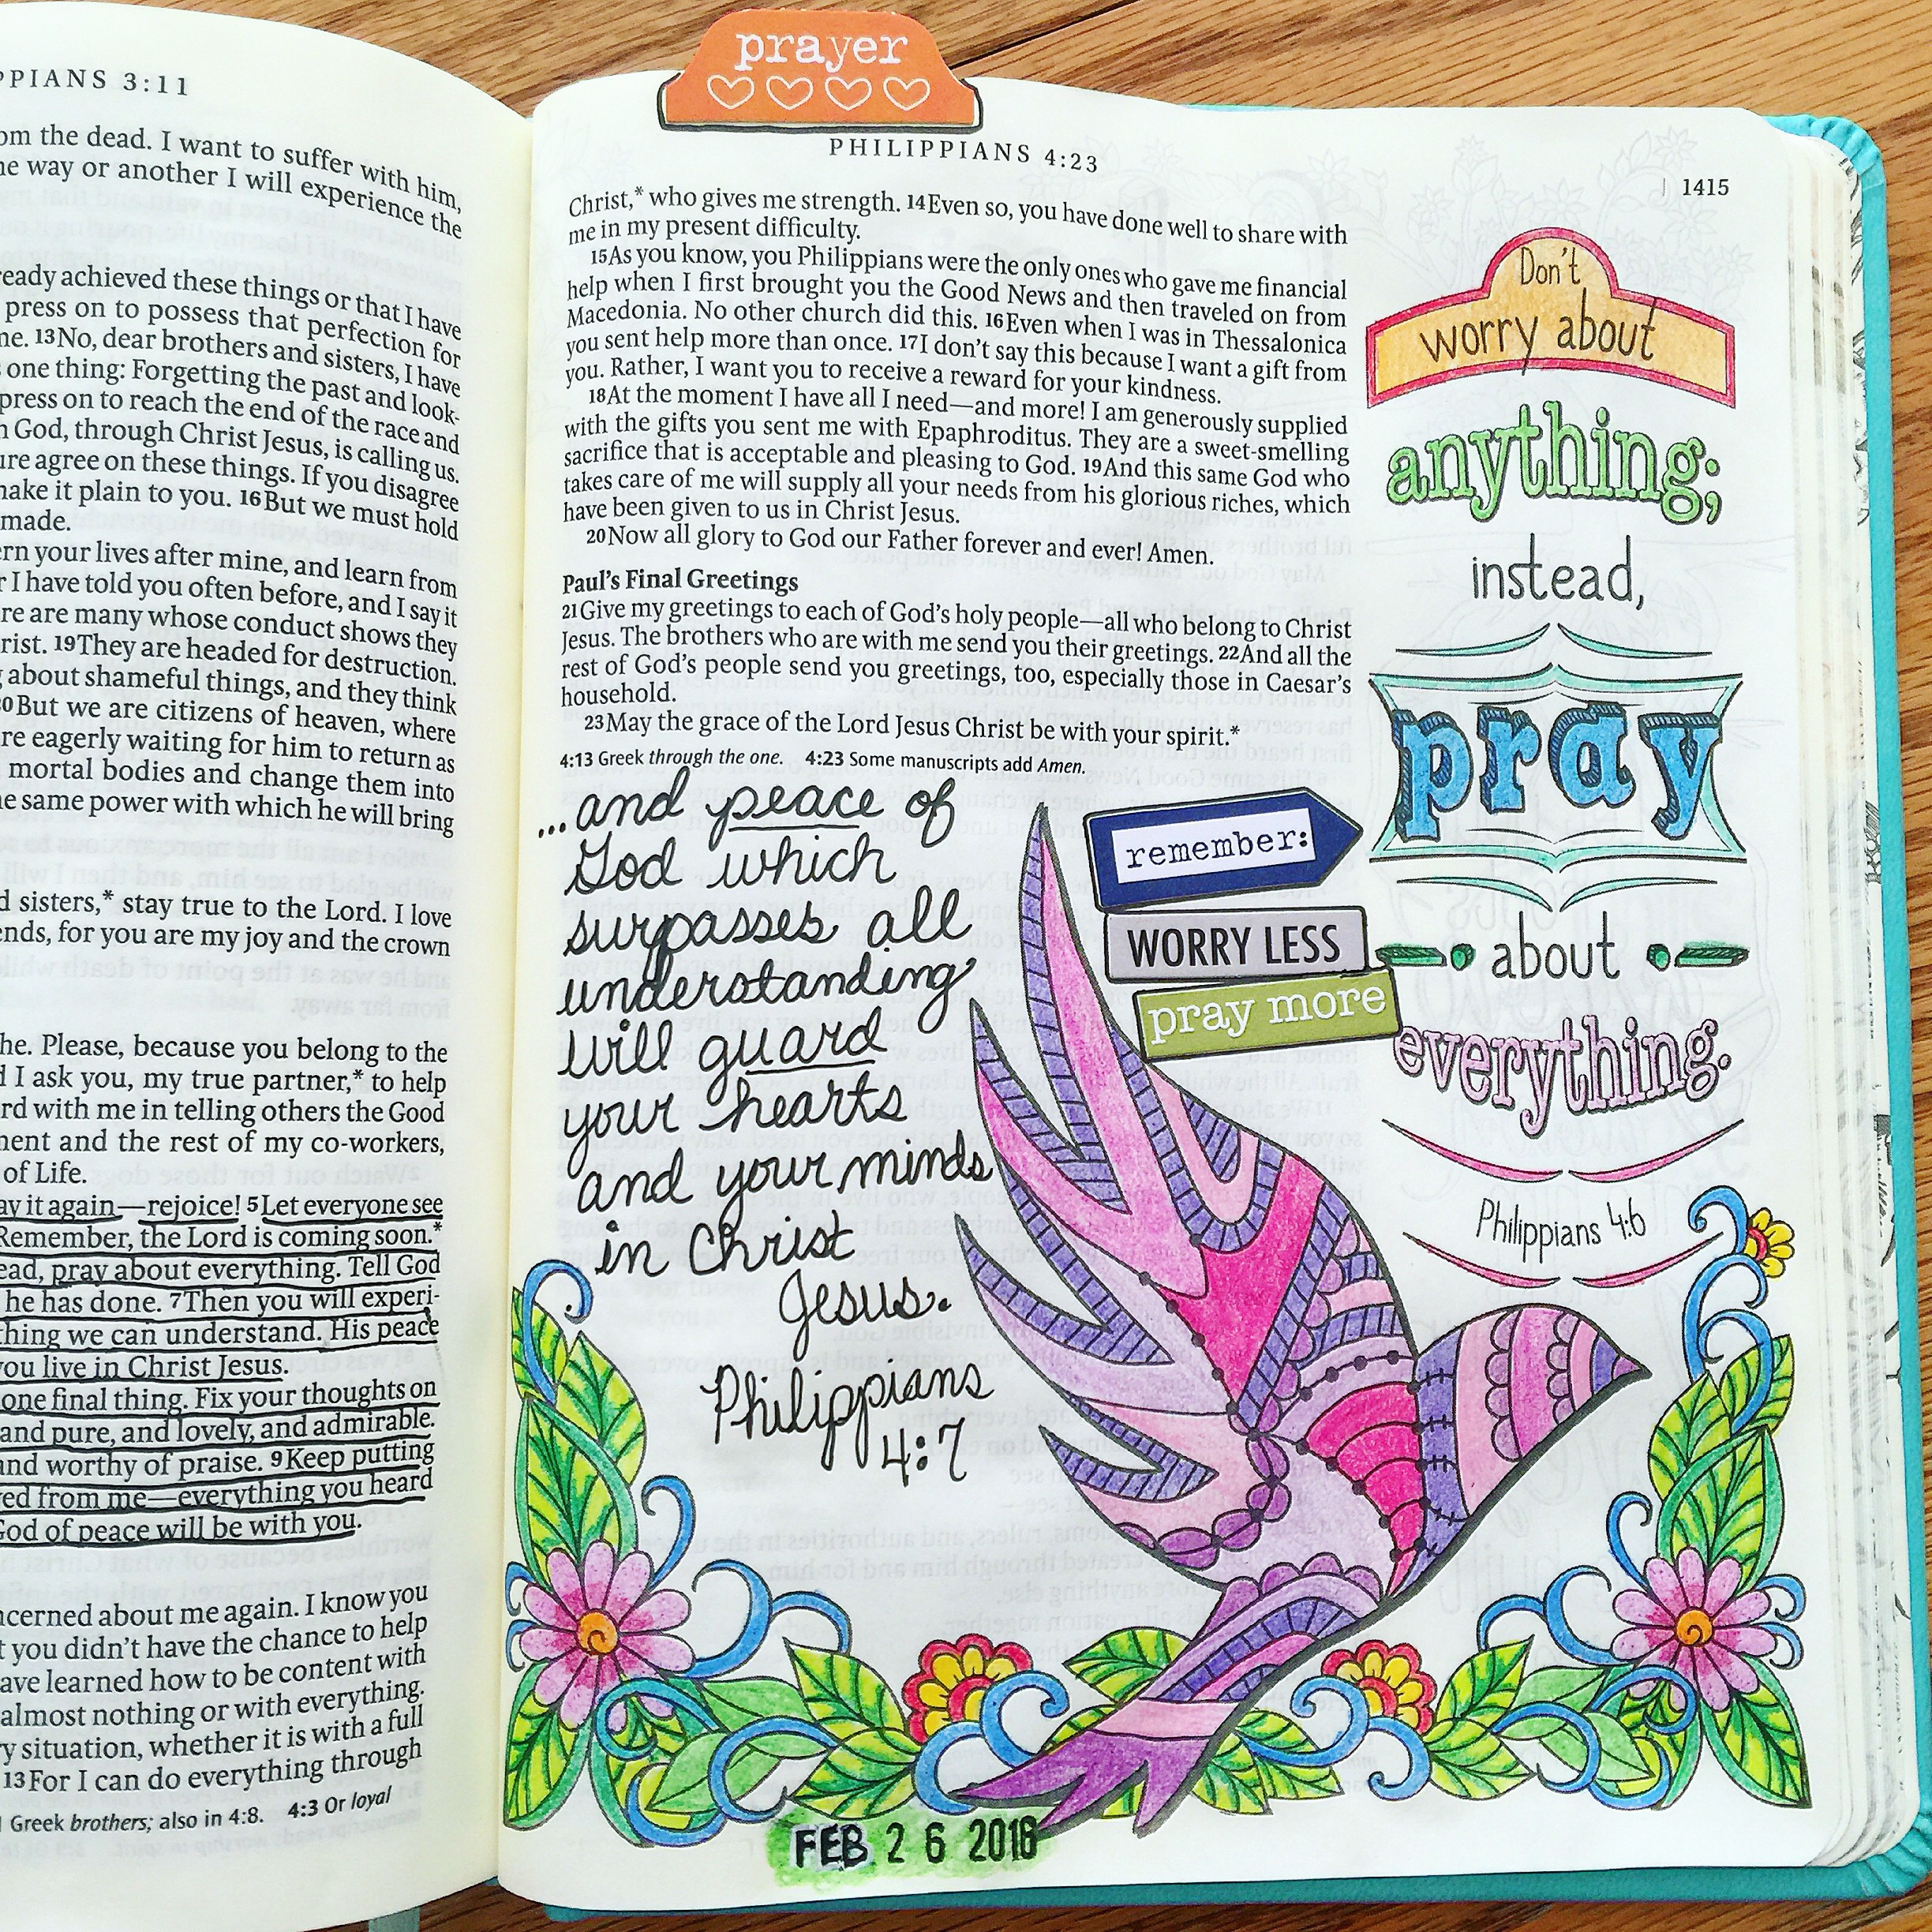 PPIANS 3:11
om the dead. I want to suffer with him,
ne way or another I will experience the
eady achieved these things or that I have
press on to possess that perfection for
ne. 13No, dear brothers and sisters, I have
one thing: Forgetting the past and look-
press on to reach the end of the race and
h God, through Christ Jesus, is calling us.
ure agree on these things. If you disagree
make it plain to you. 16But we must hold
made.
ern your lives after mine, and learn from
r I have told you often before, and I say it
re are many whose conduct shows they
rist. 19They are headed for destruction.
g about shameful things, and they think
20But we are citizens of heaven, where
re eagerly waiting for him to return as
mortal bodies and change them into
he same power with which he will bring
d sisters,* stay true to the Lord. I love
ends, for you are my joy and the crown
he. Please, because you belong to the
d I ask you, my true partner,* to help
rd with me in telling others the Good
ment and the rest of my co-workers,
of Life.
ay it again—rejoice! 5Let everyone see
Remember, the Lord is coming soon.*
ead, pray about everything. Tell God
he has done. 7Then you will experi-
thing we can understand. His peace
you live in Christ Jesus.
one final thing. Fix your thoughts on
and pure, and lovely, and admirable.
and worthy of praise. 9Keep putting
ved from me—everything you heard
God of peace will be with you.
ncerned about me again. I know you
t you didn't have the chance to help
ave learned how to be content with
almost nothing or with everything.
y situation, whether it is with a full
13For I can do everything through
Greek brothers; also in 4:8. 4:3 Or loyal
prayer
PHILIPPIANS 4:23
1415
Christ,* who gives me strength. 14Even so, you have done well to share with
me in my present difficulty.
15As you know, you Philippians were the only ones who gave me financial
help when I first brought you the Good News and then traveled on from
Macedonia. No other church did this. 16Even when I was in Thessalonica
you sent help more than once. 17I don't say this because I want a gift from
you. Rather, I want you to receive a reward for your kindness.
18At the moment I have all I need—and more! I am generously supplied
with the gifts you sent me with Epaphroditus. They are a sweet-smelling
sacrifice that is acceptable and pleasing to God. 19And this same God who
takes care of me will supply all your needs from his glorious riches, which
have been given to us in Christ Jesus.
20Now all glory to God our Father forever and ever! Amen.
Paul's Final Greetings
21Give my greetings to each of God's holy people—all who belong to Christ
Jesus. The brothers who are with me send you their greetings. 22And all the
rest of God's people send you greetings, too, especially those in Caesar's
household.
23May the grace of the Lord Jesus Christ be with your spirit.*
4:13 Greek through the one. 4:23 Some manuscripts add Amen.
...and peace of
God which
surpasses all
understanding
will guard
your hearts
and your minds
in Christ
Jesus.
Philippians
4:7
remember:
WORRY LESS
pray more
Don't
worry about
anything;
instead,
pray
about
everything.
Philippians 4:6
FEB 26 2016